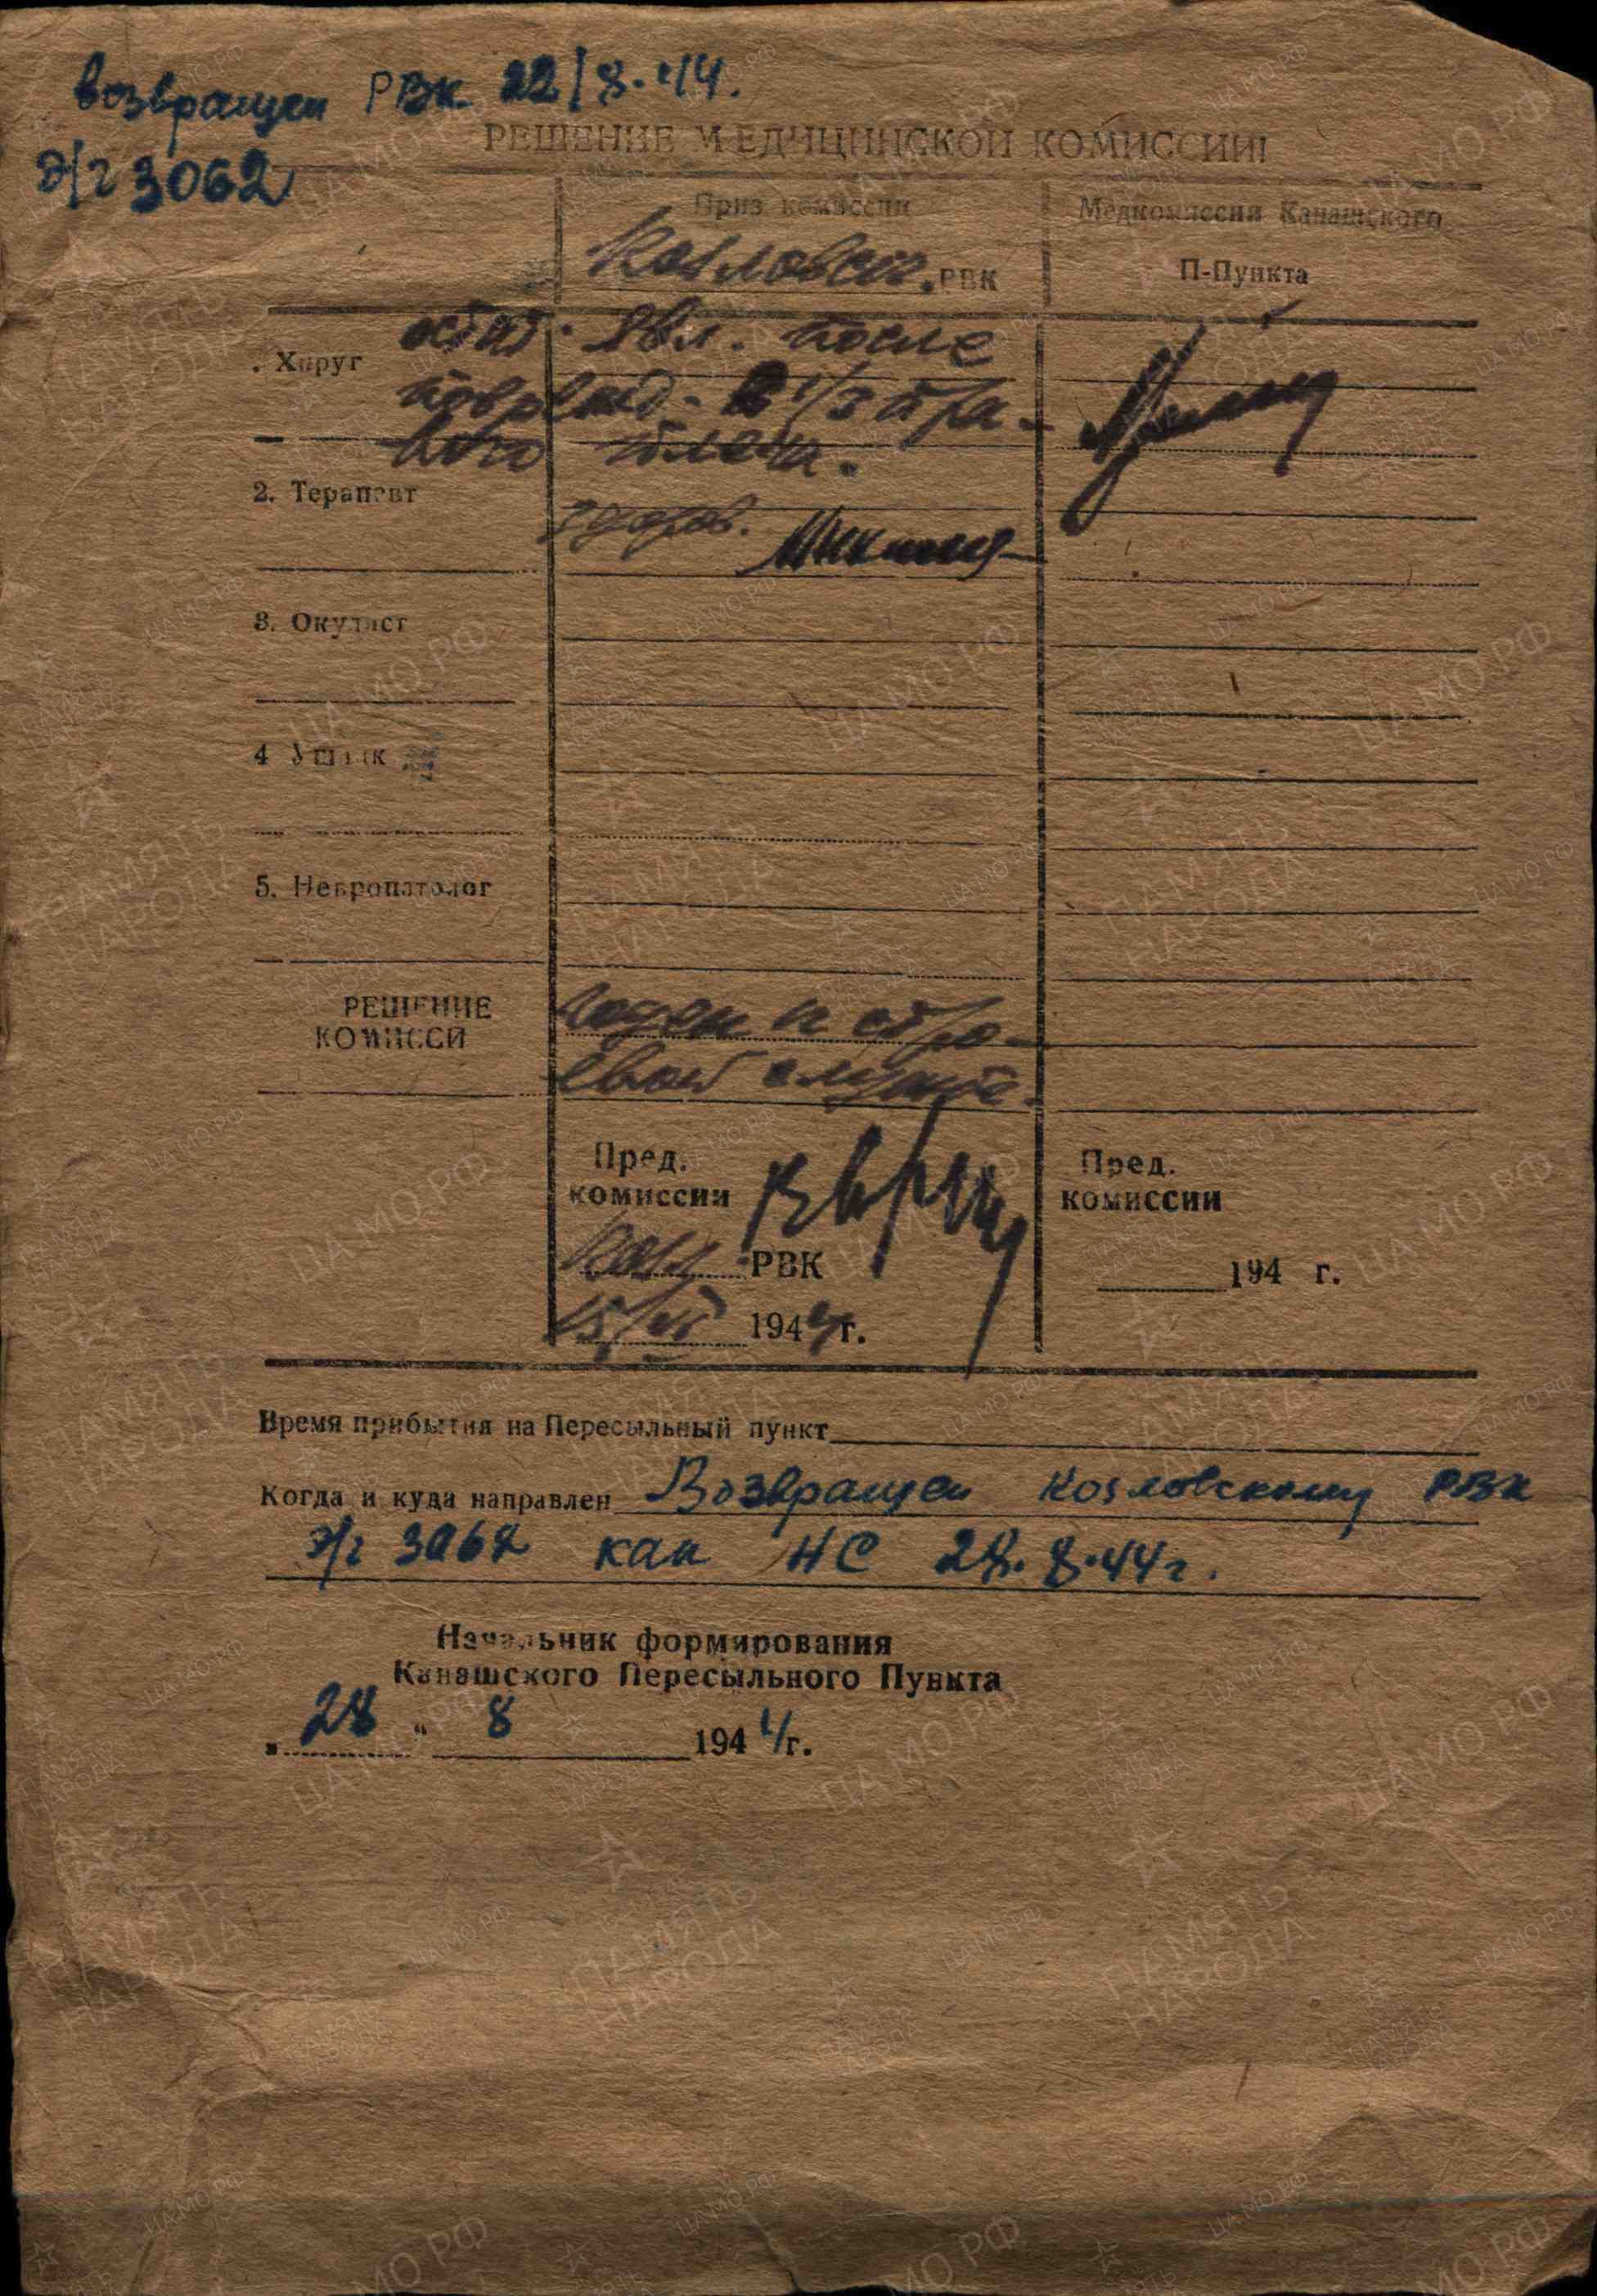 возвращен РВК 22/8.44.
э/г 3062
РЕШЕНИЕ МЕДИЦИНСКОЙ КОМИССИИ
Приз комиссии
Медкомиссия Канашского
Козловск. РВК
П-Пункта
остат. явл. после
. Хируг
поврежд. в 1/3 пра-
вого плеча.
2. Терапевт
здоров.
3. Окулист
4 Ушник
5. Невропатолог
РЕШЕНИЕ
КОМИССИ
Годен к стро-
евой службе.
Пред.
комиссии
Козл РВК
15/VI 1944г.
Пред.
комиссии
194 г.
Время прибытия на Пересыльный пункт
Когда и куда направлен Возвращен Козловскому РВК
э/г 3062 как НС 28.8.44г.
Начальник формирования
Канашского Пересыльного Пункта
„ 28 “ 8 1944г.